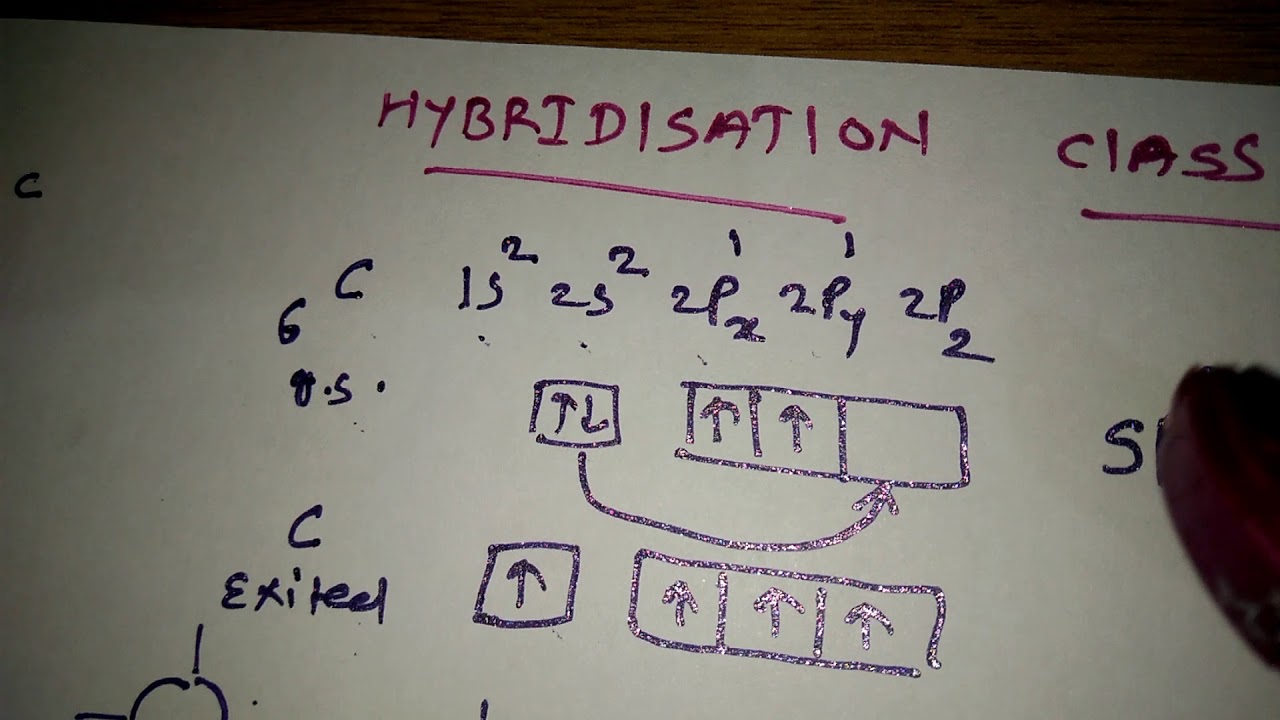 HYBRIDISATION CLASS
C
6 C 1s² 2s² 2Px¹ 2Py¹ 2Pz
g.s.
↑↓ ↑ ↑
S
C
Exited
↑ ↑ ↑ ↑